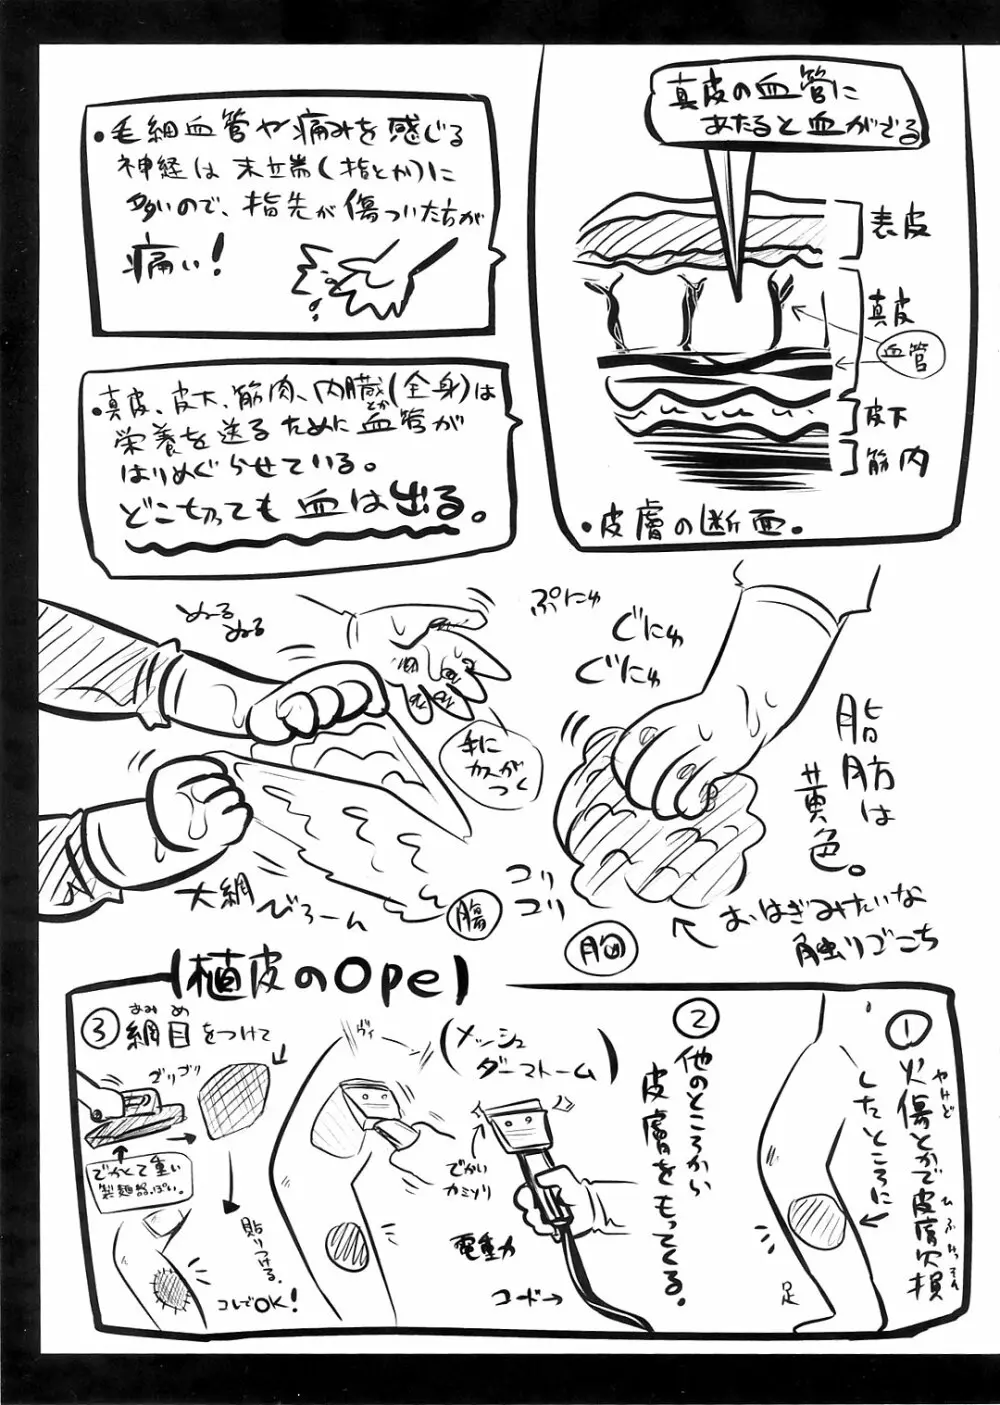 真皮の血管に
あたると血がでる
表皮
真皮
血管
皮下
筋肉
・皮膚の断面。
・毛細血管や痛みを感じる
神経は末端(指とか)に
多いので、指先が傷ついた方が
痛い!
・真皮、皮下、筋肉、内臓とか(全身)は
栄養を送るために血管が
はりめぐらせている。
どこ切っても血は出る。
ぷにゅ
ぐにゅ
ぐにゅ
脂肪は
黄色。
おはぎみたいな
触りごこち
胸
コリ
コリ
ぬーる
ぬる
手に
カスが
つく
大網
びろーん
腸
【植皮のOpe】
①火傷とかで皮膚欠損
やけど
ひふけっそん
したところに
足
②他のところから
皮膚をもってくる。
(メッシュ
ダーマトーム)
でかい
カミソリ
電動力
コード→
ヴィ
③網目をつけて
あみ め
ゴリゴリ
でかくて重い
製麺器っぽい。
貼りつける。
コレでOK!